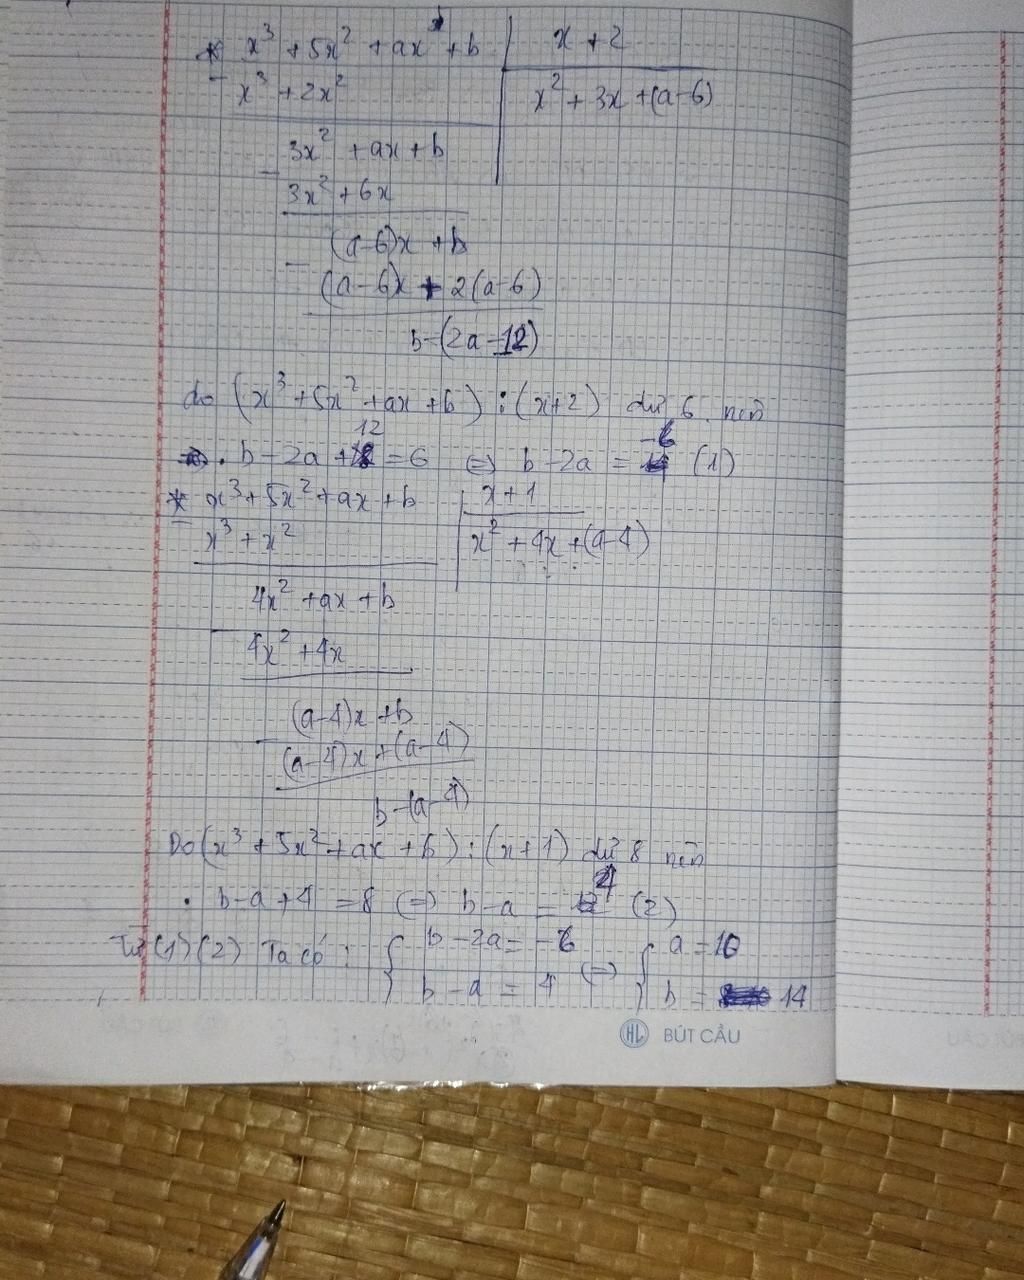 * x³ + 5x² + ax + b | x + 2
- x³ + 2x² | x² + 3x + (a-6)
3x² + ax + b
- 3x² + 6x
(a-6)x + b
- (a-6)x + 2(a-6)
b-(2a-12)
do (x³ + 5x² + ax + b) : (x+2) dư 6 nên
. b - 2a + 12 = 6 ⇔ b - 2a = -6 (1)
* x³ + 5x² + ax + b | x + 1
- x³ + x² | x² + 4x + (a-4)
4x² + ax + b
- 4x² + 4x
(a-4)x + b
- (a-4)x + (a-4)
b-(a-4)
Do (x³ + 5x² + ax + b) : (x+1) dư 8 nên
. b-a+4 = 8 ⇔ b-a = 4 (2)
Từ (1) (2) Ta có : { b - 2a = -6 ⇔ { a = 10
b - a = 4 b = 14
HL BÚT CẦU